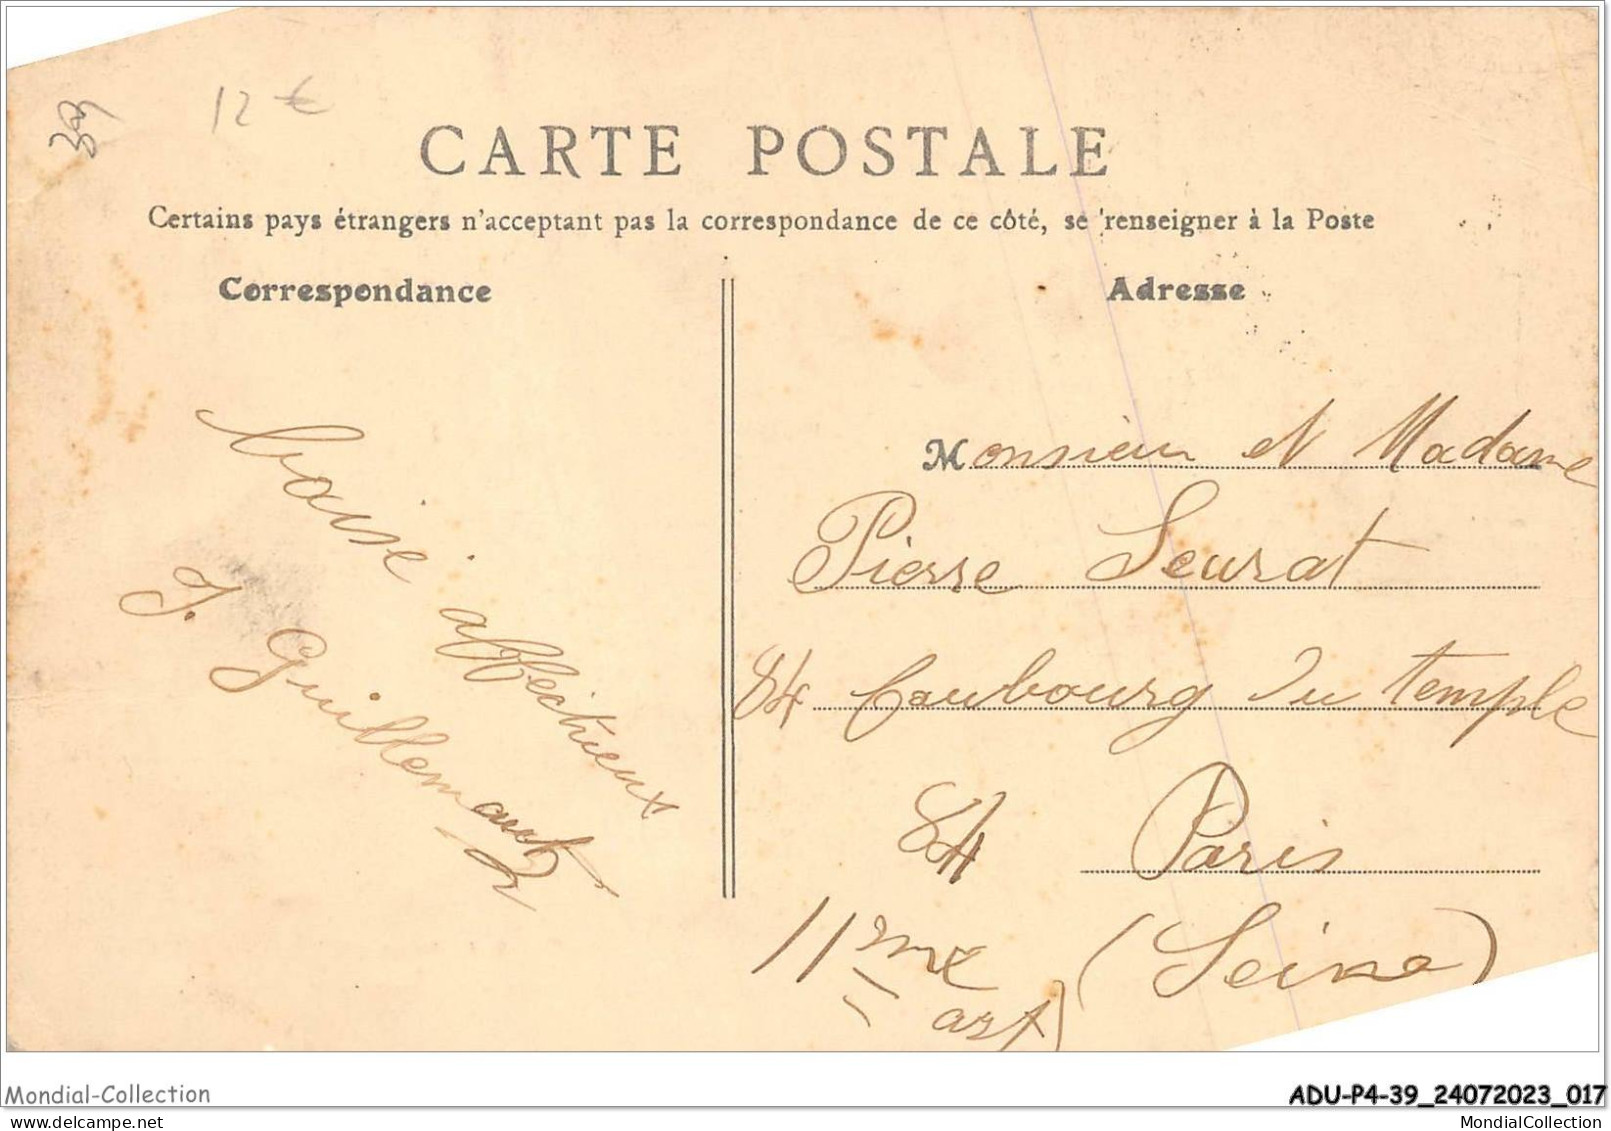 39
12 €
CARTE POSTALE
Certains pays étrangers n'acceptant pas la correspondance de ce côté, se renseigner à la Poste
Correspondance
Adresse
baisé affectieux
J. Guillemaut
Monsieur et Madame
Pierre Seurat
84 faubourg du temple
84 Paris
11me (Seine)
Mondial-Collection
ADU-P4-39_24072023_017
www.delcampe.net
MondialCollection